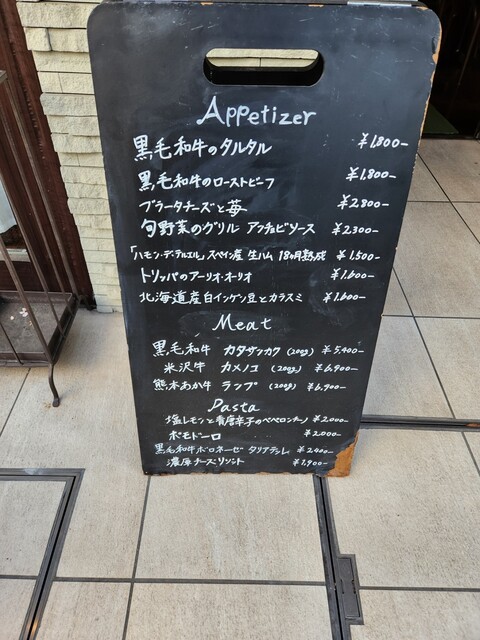 Appetizer
黒毛和牛のタルタル ¥1.800-
黒毛和牛のローストビーフ ¥1.800-
ブラータチーズと苺 ¥2800-
旬野菜のグリル アンチョビソース ¥2300-
「ハモン・デ・テルエル」スペイン産 生ハム 18ヶ月熟成 ¥1.500-
トリッパのアーリオ・オーリオ ¥1.600-
北海道産白インゲン豆とカラスミ ¥1.600-
Meat
黒毛和牛 カタサンカク (200g) ¥5,400-
米沢牛 カメノコ (200g) ¥6,900-
熊本あか牛 ランプ (200g) ¥6,900-
Pasta
塩レモンと青唐辛子のペペロンチーノ ¥2.000-
ポモドーロ ¥2.000-
黒毛和牛ボロネーゼ タリアテッレ ¥2400-
濃厚チーズリゾット ¥1,900-